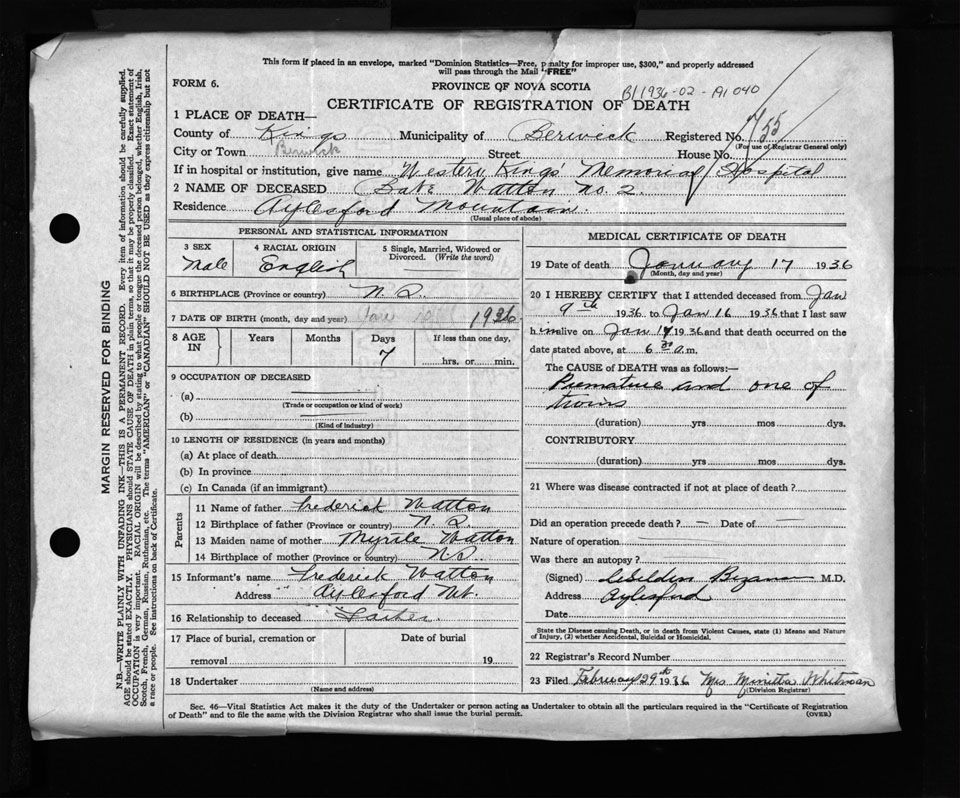 This form if placed in an envelope, marked "Dominion Statistics—Free, penalty for improper use, $300," and properly addressed
will pass through the Mail "FREE"
FORM 6.
PROVINCE OF NOVA SCOTIA
B/1936-02-
040
CERTIFICATE OF REGISTRATION OF DEATH
1 PLACE OF DEATH—
County of Kings Municipality of Berwick Registered No. 755
(For use of Registrar General only)
City or Town Berwick Street House No.
If in hospital or institution, give name Western Kings' Memorial Hospital
2 NAME OF DECEASED Watton No. 2.
Residence Aylesford Mountain.
(Usual place of abode)
PERSONAL AND STATISTICAL INFORMATION
3 SEX
Male
4 RACIAL ORIGIN
English
5 Single, Married, Widowed or
Divorced. (Write the word)
6 BIRTHPLACE (Province or country) N.S.
7 DATE OF BIRTH (month, day and year) 1936
8 AGE
IN
Years Months Days If less than one day,
7 hrs. or min.
9 OCCUPATION OF DECEASED
(a)
(Trade or occupation or kind of work)
(b)
(Kind of industry)
10 LENGTH OF RESIDENCE (in years and months)
(a) At place of death
(b) In province
(c) In Canada (if an immigrant)
Parents
11 Name of father Frederick Watton
12 Birthplace of father (Province or country) N.S.
13 Maiden name of mother Myrtle Watton
14 Birthplace of mother (Province or country) N.S.
15 Informant's name Frederick Watton
Address Aylesford Mt.
16 Relationship to deceased Father.
17 Place of burial, cremation or Date of burial
removal 19
18 Undertaker
(Name and address)
MEDICAL CERTIFICATE OF DEATH
19 Date of death January 17 1936
(Month, day and year)
20 I HEREBY CERTIFY that I attended deceased from Jan
9th 1936 to Jan 16 1936 that I last saw
him alive on Jan 1936 and that death occurred on
date stated above, at 6 30 a.m.
The CAUSE OF DEATH was as follows:—
Premature and one of
twins
(duration) yrs mos dys.
CONTRIBUTORY
(duration) yrs mos dys.
21 Where was disease contracted if not at place of death?
Did an operation precede death? — Date of —
Nature of operation
Was there an autopsy?
(Signed) M.D.
Address Aylesford
Date
State the Disease causing Death, or in death from Violent Causes, state (1) Means and Nature
of Injury, (2) whether Accidental, Suicidal or Homicidal.
22 Registrar's Record Number
23 Filed February 29th 1936 Mrs Minetta Whitman
(Division Registrar)
Sec. 46—Vital Statistics Act makes it the duty of the Undertaker or person acting as Undertaker to obtain all the particulars required in the "Certificate of Registration
of Death" and to file the same with the Division Registrar who shall issue the burial permit. (OVER)
MARGIN RESERVED FOR BINDING
N.B.—WRITE PLAINLY WITH UNFADING INK—THIS IS A PERMANENT RECORD. Every item of information should be carefully supplied.
AGE should be stated EXACTLY. PHYSICIANS should STATE CAUSE OF DEATH in plain terms, so that it may be properly classified. Exact statement of
OCCUPATION is very important. RACIAL ORIGIN will be described by stating to what people or tongue the deceased person belonged, whether English, Irish,
Scotch, French, German, Russian, Ruthenian, etc. The terms "AMERICAN" or "CANADIAN" SHOULD NOT BE USED as they express citizenship but not
a race or people. See instructions on back of Certificate.